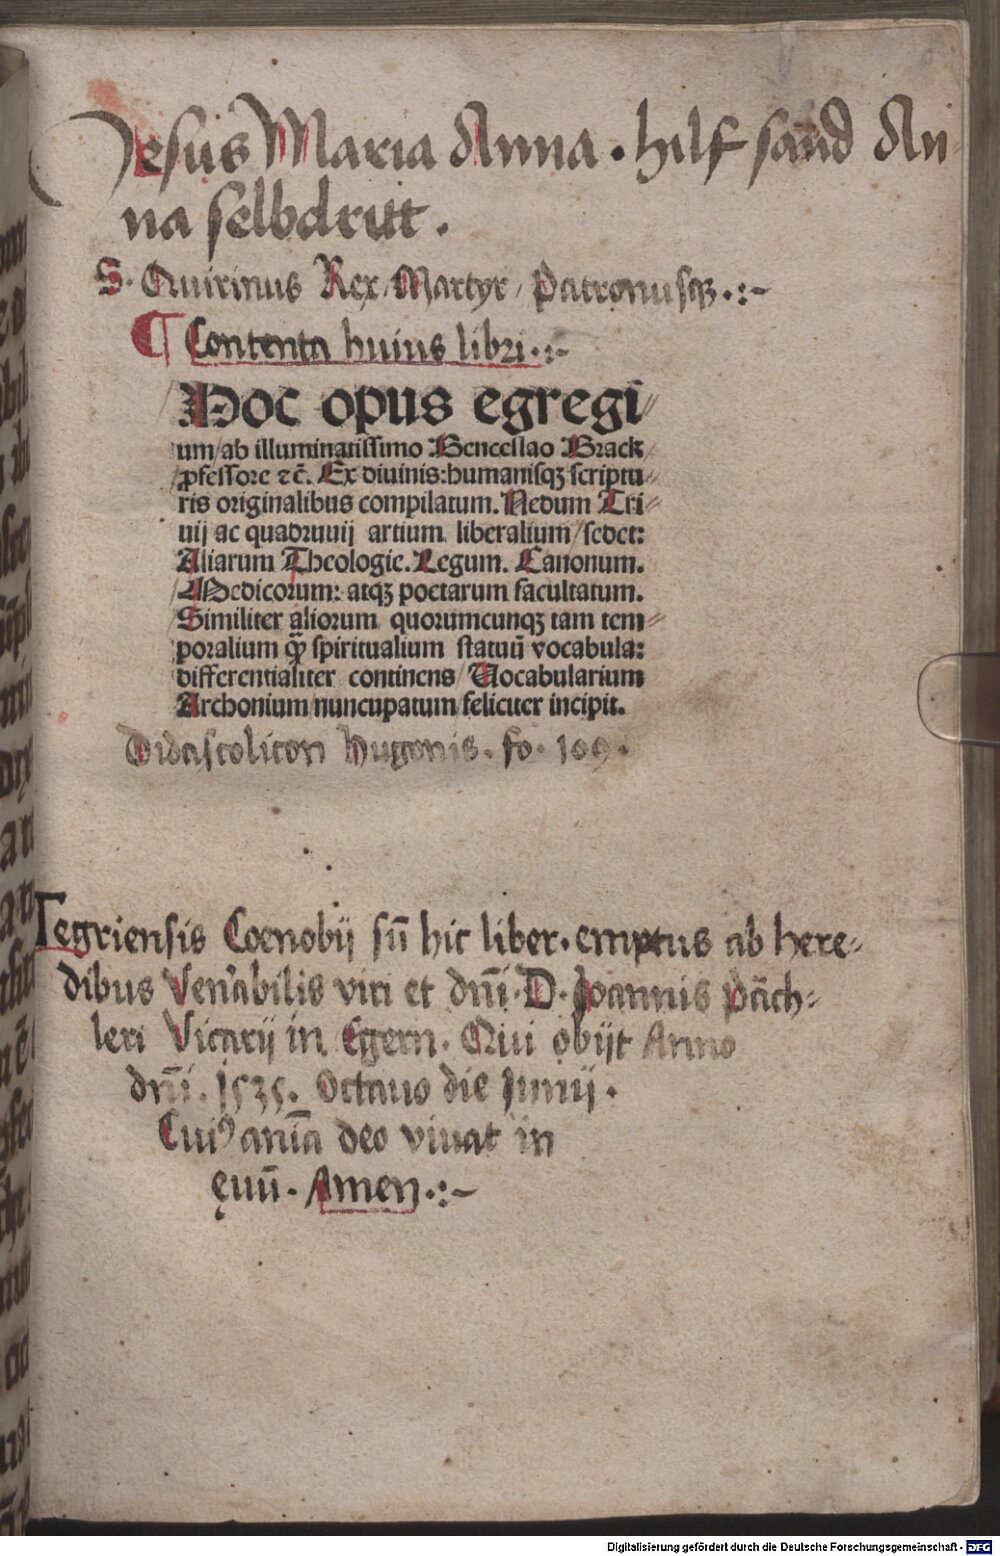 Jesus Maria Anna . hilf sannd An
na selbdritt .
S. Quirinus Rex, Martyr, Patronusqꝫ .:~
¶ Contenta huius libri .:~
Hoc opus egregi⸗
um/ab illuminatissimo Venceslao Brack
ꝓfessore ⁊c̄. Ex diuinis:humanisqꝫ scriptu⸗
ris originalibus compilatum. Nedum Tri⸗
uij ac quadruuij artium liberalium/sedet:
Aliarum Theologie. Legum. Canonum.
Medicorum: atqꝫ poetarum facultatum.
Similiter aliorum quorumcunqꝫ tam tem⸗
poralium qꝫ̄ spiritualium statuū vocabula:
differentialiter continens/Uocabularium
Archonium/nuncupatum feliciter incipit.
Didascolicon Hugonis . fo . 109 .
Tegriensis Coenobij sū hic liber . emptus ab here⸗
dibus Ven̄abilis viri et dn̄i . D . Joannis Pāch⸗
leri Vicarij in Egern . Qui obijt Anno
dn̄i . 1535 . Octauo die Junij .
Cuiꝰ anīa deo viuat in
ęuū . Amen .:~
Digitalisierung gefördert durch die Deutsche Forschungsgemeinschaft - DFG